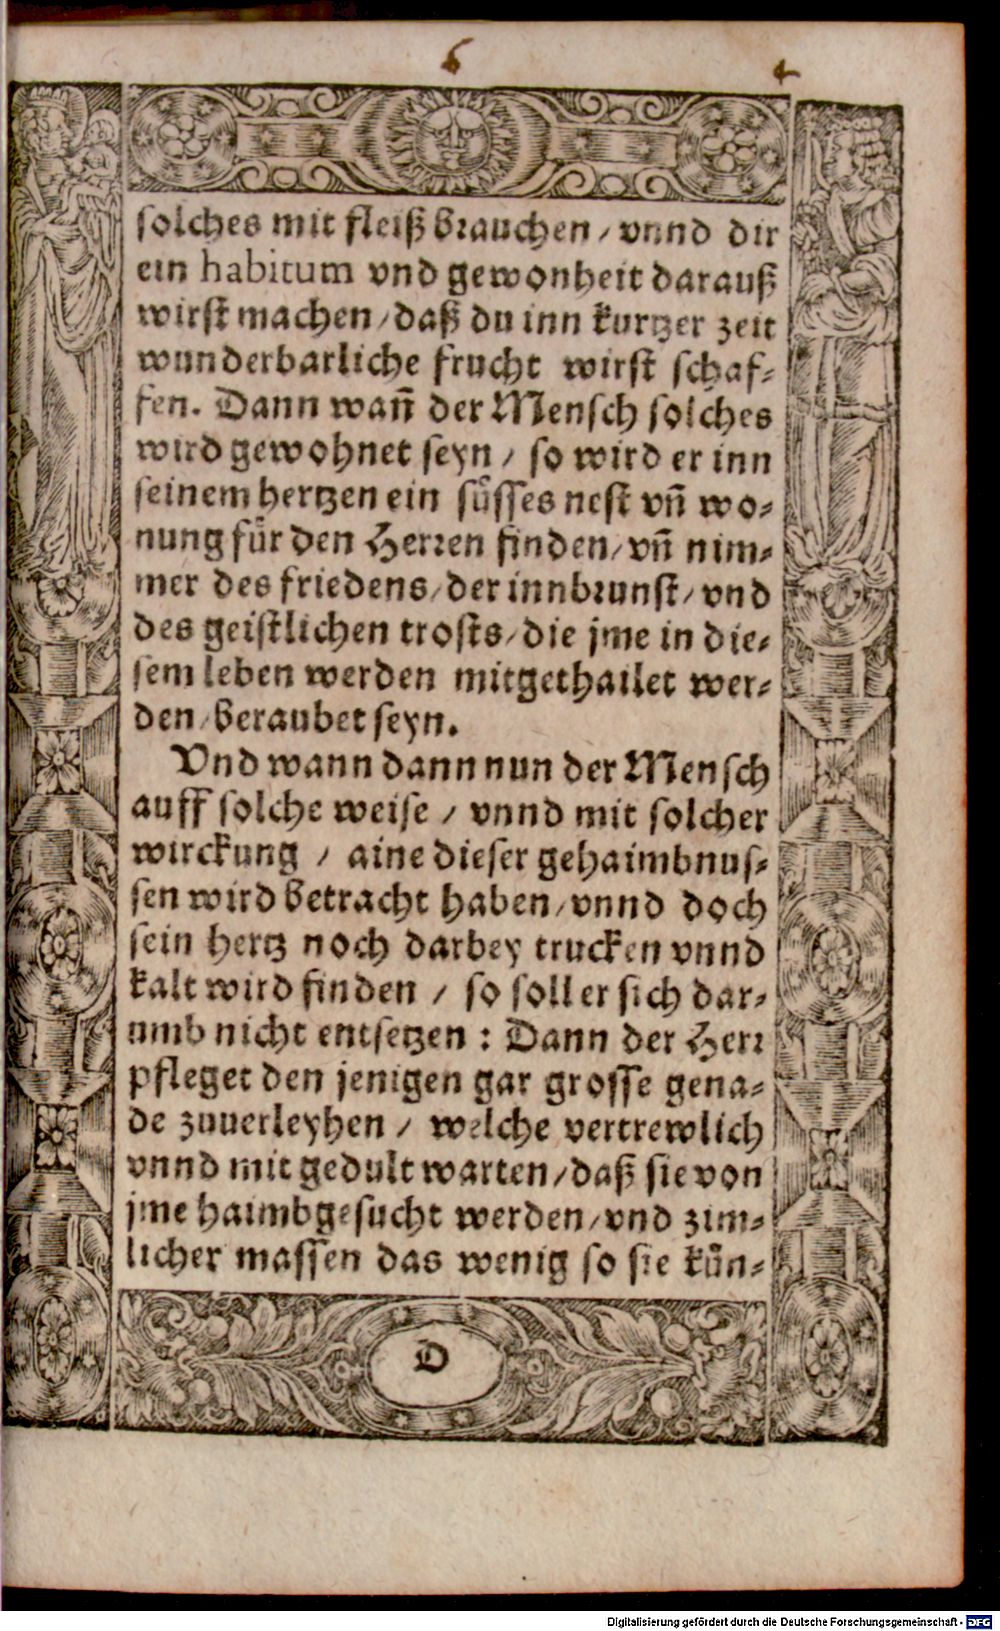 6 4
solches mit fleiß brauchen / vnnd dir
ein habitum vnd gewonheit darauß
wirst machen / daß du inn kurtzer zeit
wunderbarliche frucht wirst schaf⸗
fen. Dann wañ der Mensch solches
wird gewohnet seyn / so wird er inn
seinem hertzen ein süsses nest vñ wo⸗
nung für den Herren finden / vñ nim⸗
mer des friedens / der innbrunst / vnd
des geistlichen trosts / die jme in die⸗
sem leben werden mitgethailet wer⸗
den / beraubet seyn.
Vnd wann dann nun der Mensch
auff solche weise / vnnd mit solcher
wirckung / aine dieser gehaimbnus⸗
sen wird betracht haben / vnnd doch
sein hertz noch darbey trucken vnnd
kalt wird finden / so soll er sich dar⸗
umb nicht entsetzen : Dann der Herr
pfleget den jenigen gar grosse gena⸗
de zuuerleyhen / welche vertrewlich
vnnd mit gedult warten / daß sie von
jme haimbgesucht werden / vnd zim⸗
licher massen das wenig so sie kün⸗
D
Digitalisierung gefördert durch die Deutsche Forschungsgemeinschaft - DFG